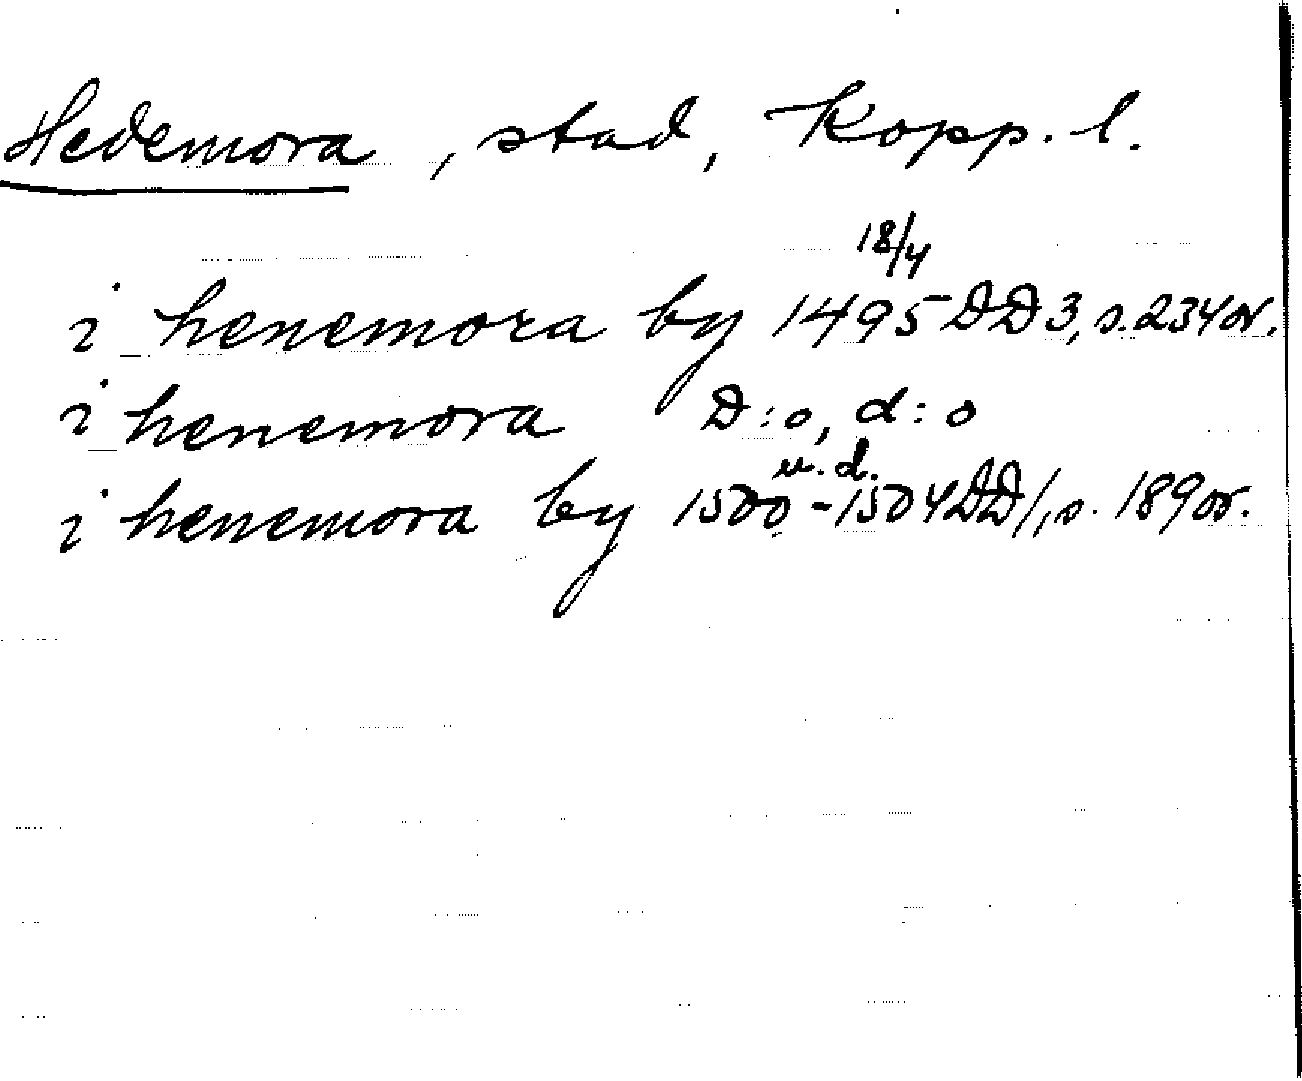 Hedemora, stad, Kopp. l.
18/4
i henemora by 1495 DD 3, s. 234 or.
i henemora D:o, d:o
u. d.
i henemora by 1500-1504 DD 1, s. 189 or.